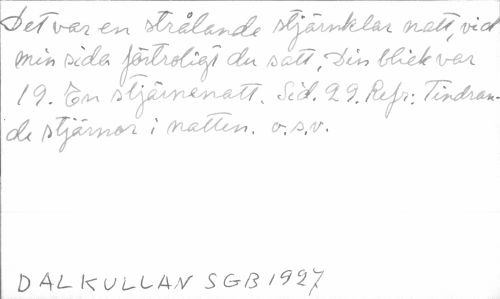 Det var en strålande stjärnklar natt, vid
min sida förtroligt du satt, Din blick var
19. En stjärnenatt. Sid. 29. Refr: Tindran-
de stjärnor i natten. o.s.v.
DALKULLAN SGB 1927